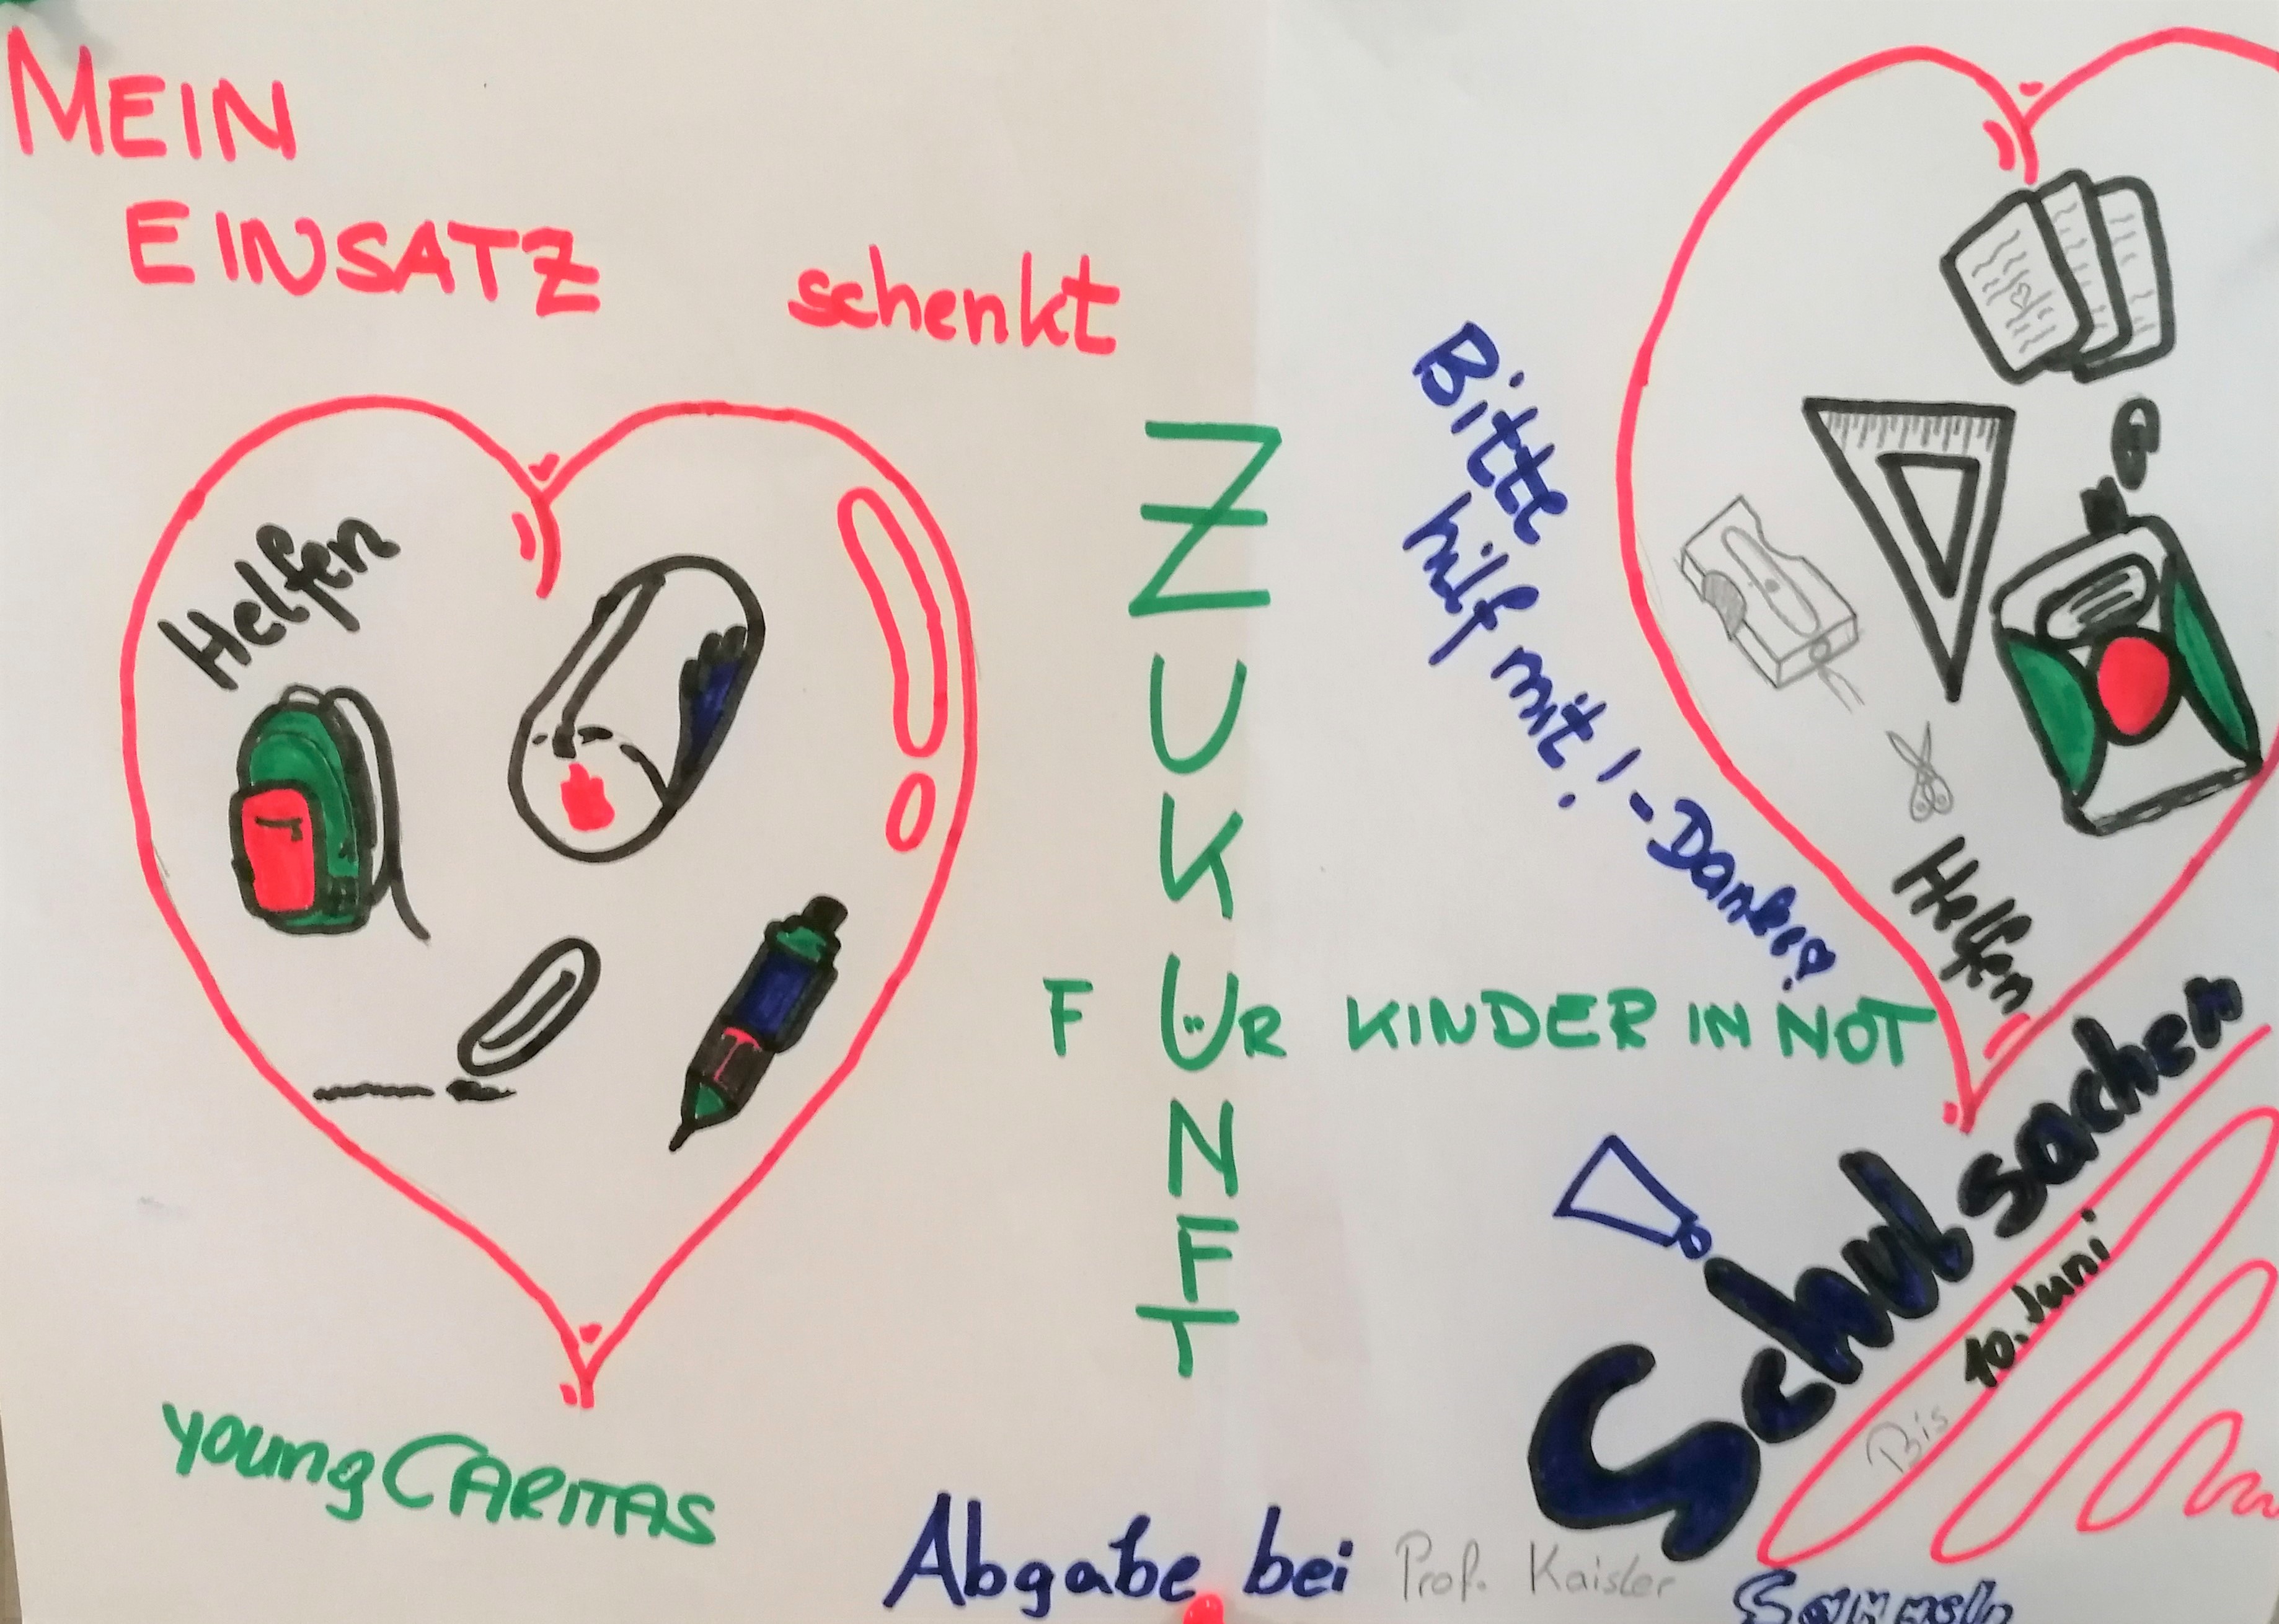 MEIN
EINSATZ schenkt
ZUKUNFT
FÜR KINDER IN NOT
Helfen
Bitte
hilf mit! - Danke!
Helfen
Schulsachen
Bis 10. Juni
youngCARITAS
Abgabe bei Prof. Kaisler
Sammeln